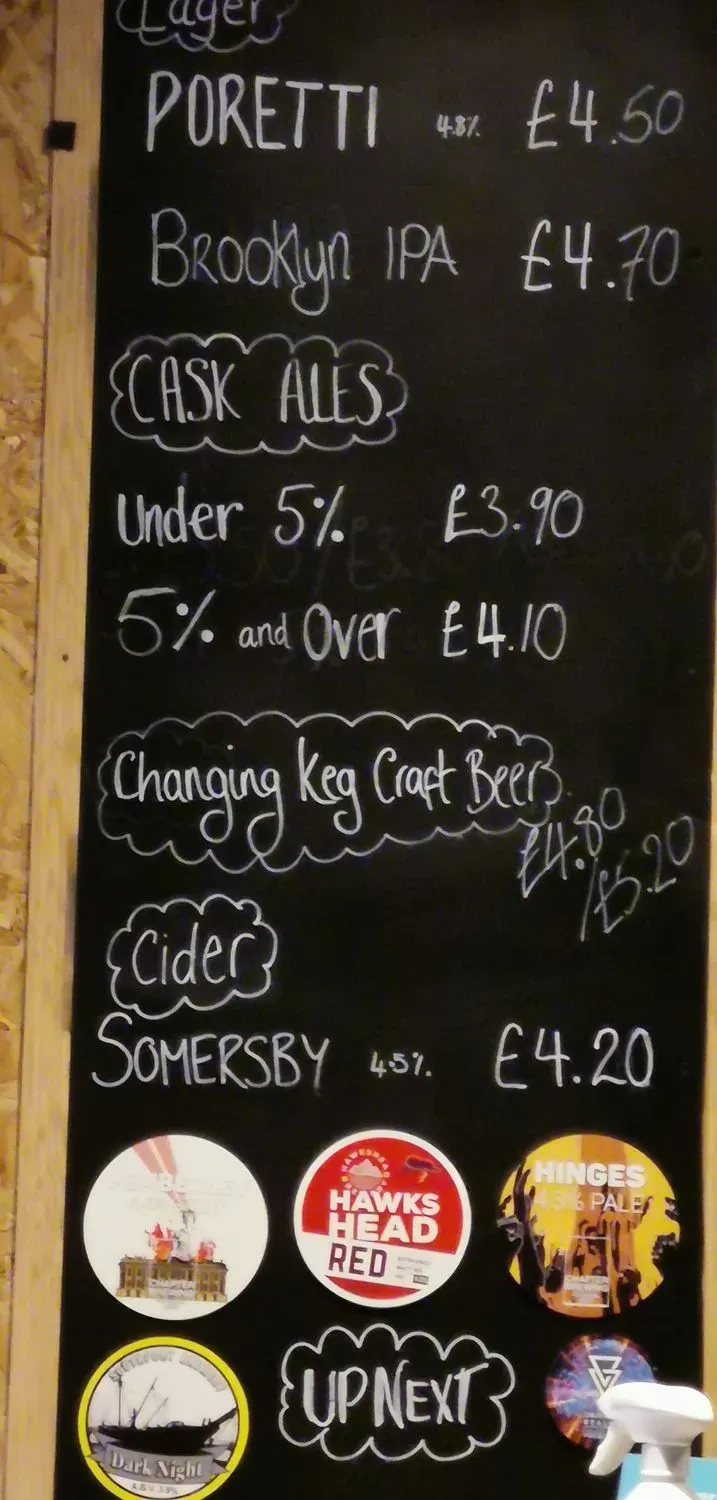 Lager
PORETTI 4.8% £4.50
Brooklyn IPA £4.70
CASK ALES
Under 5% £3.90
5% and Over £4.10
Changing Keg Craft Beer
£4.80
/£5.20
Cider
SOMERSBY 4.5% £4.20
HAWKSHEAD
HAWKS
HEAD
RED
HINGES
4.3% PALE
CHAPTER
UP NEXT
Dark Night
A.B.V 3.9%